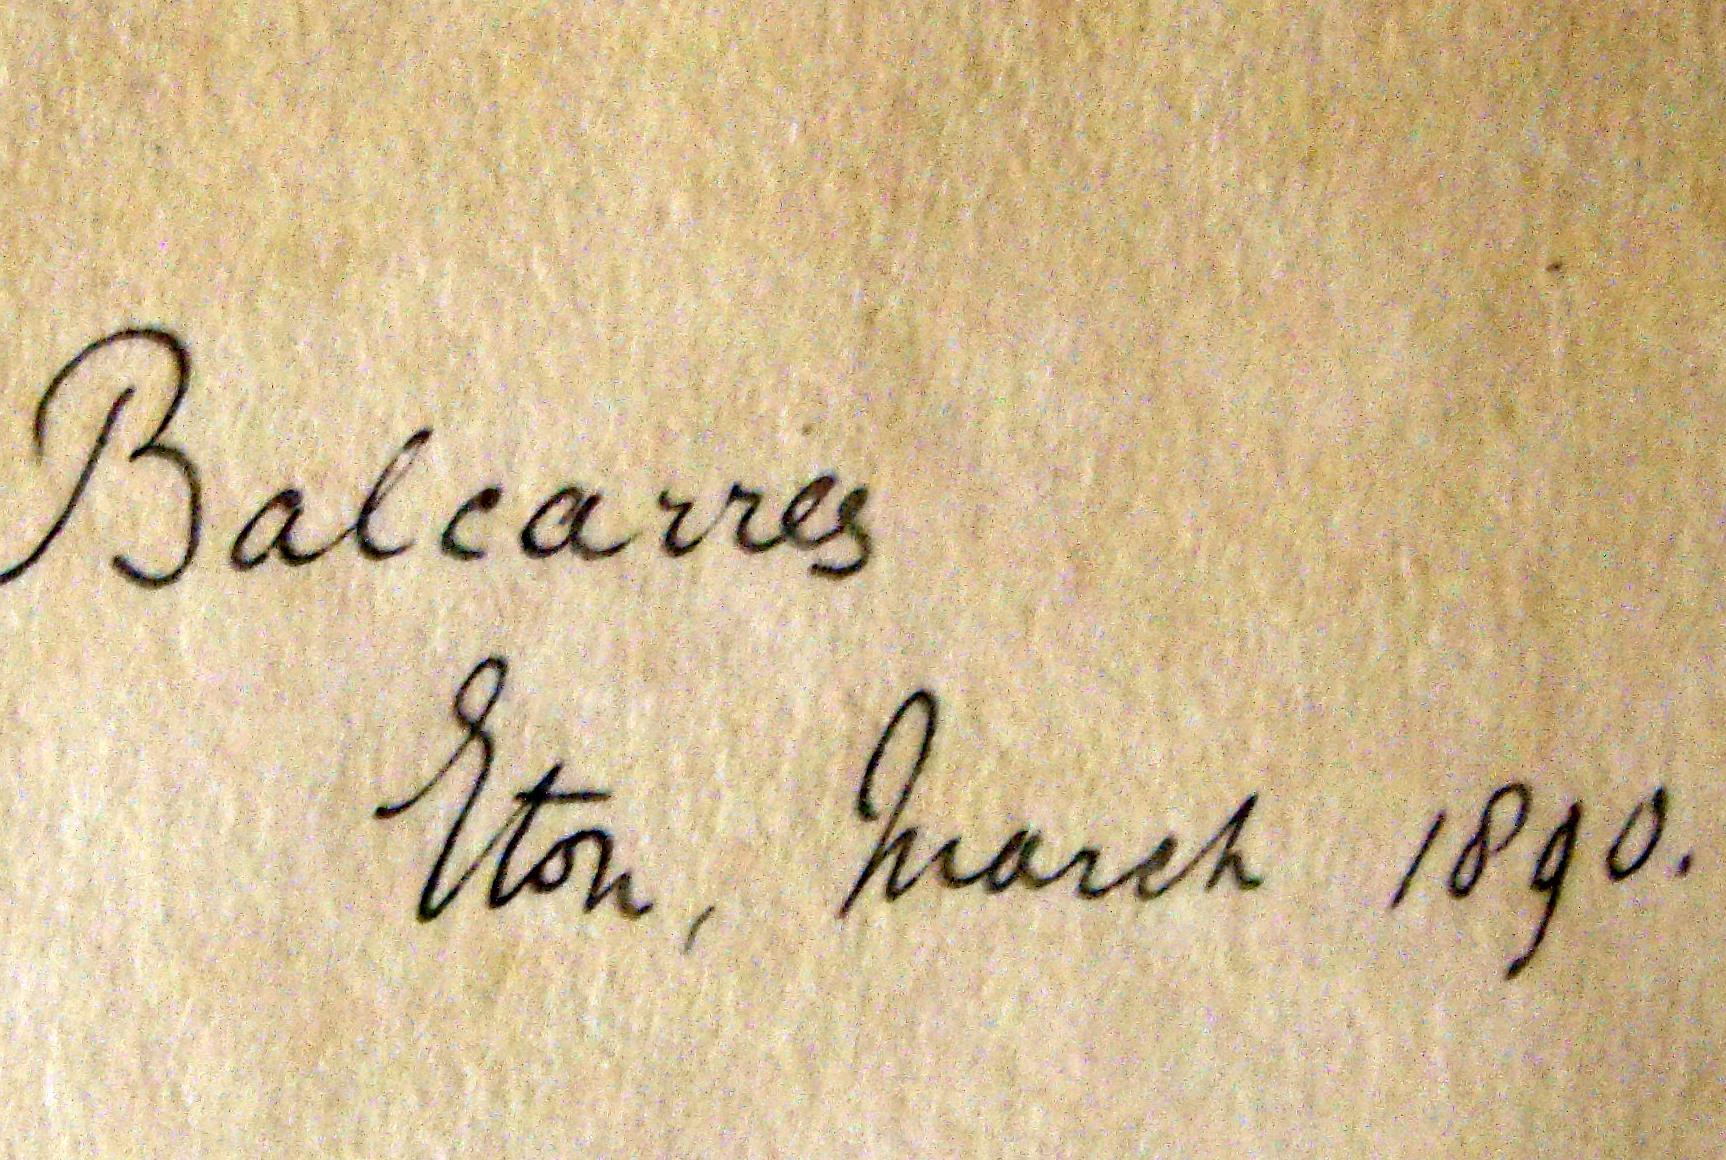 Balcarres
Eton, March 1890.